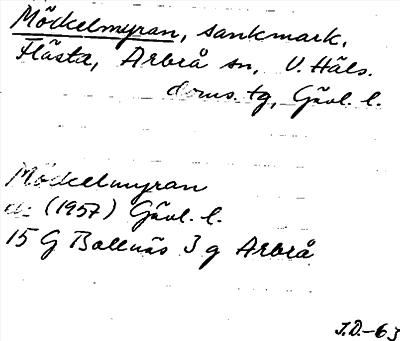 Möckelmyran, sankmark,
Flästa, Arbrå sn, V. Häls.
doms. tg, Gävl. l.
Möckelmyran
(1957) Gävl. l.
15 G Bollnäs 3 g Arbrå
J.D.-63